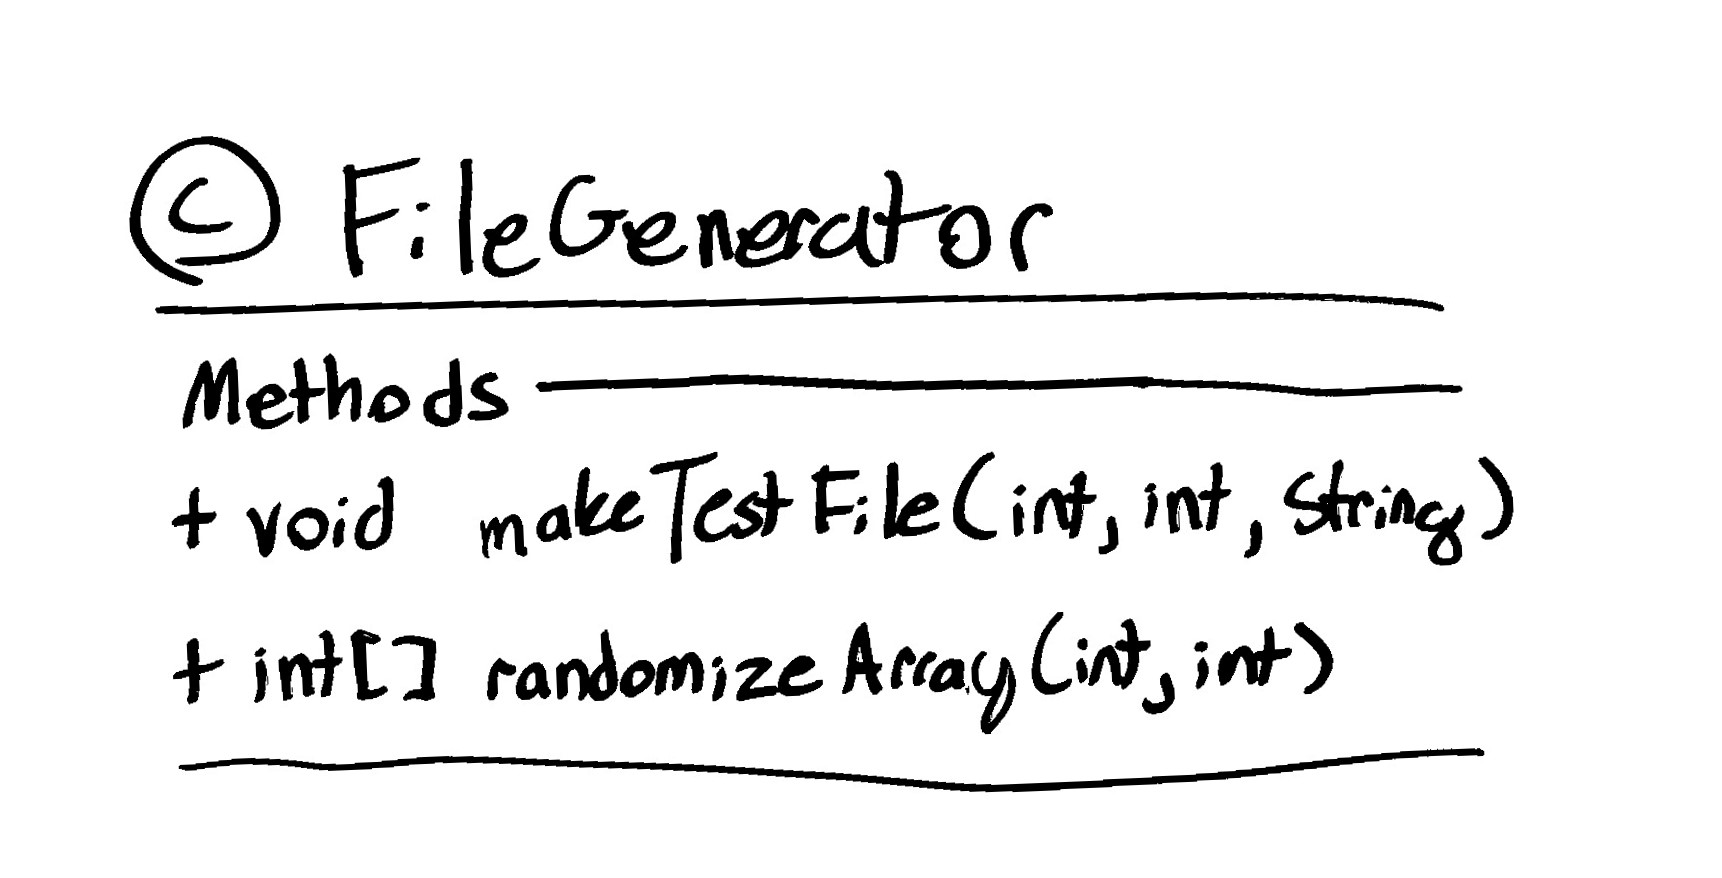 © FileGenerator
Methods
+ void makeTestFile(int, int, String)
+ int[] randomizeArray(int, int)